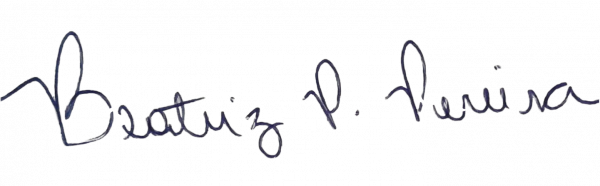 Beatriz P. Pereira